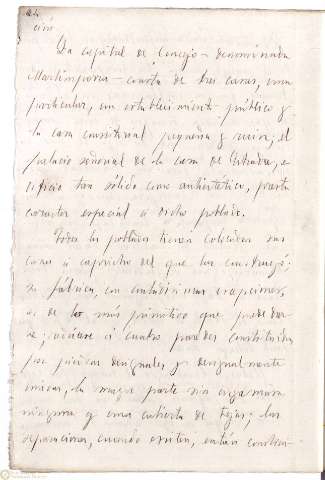 ción
La capital de Concejo - denominada
Martimporra - consta de tres casas, una
particular, un establecimiento público y
la casa consistorial pequeña y ruin; el
palacio señorial de la casa de Estrada, e-
dificio tan sólido como antiestético, presta
caracter especial a dicho poblado.
Todos los poblados tienen colocadas sus
casas a capricho del que las construyó:
su fábrica, con contadísimas excepciones,
es de lo más primitivo que puede dar-
se: redúcese a cuatro paredes constituidas
por piedras desiguales y desigualmente
unidas, la mayor parte sin argamasa
ninguna y una cubierta de tejas; las
separaciones, cuando existen, están constitui-